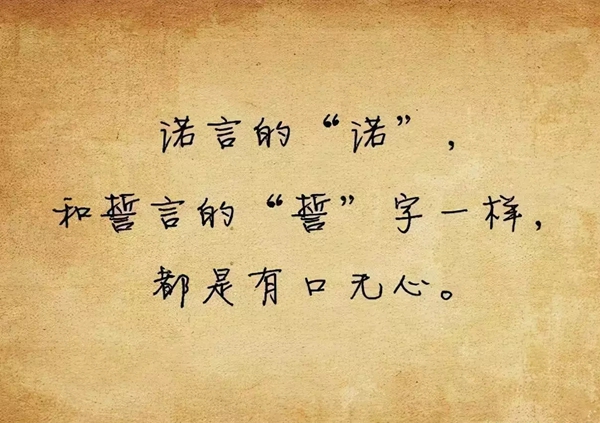 诺言的“诺”，
和誓言的“誓”字一样，
都是有口无心。